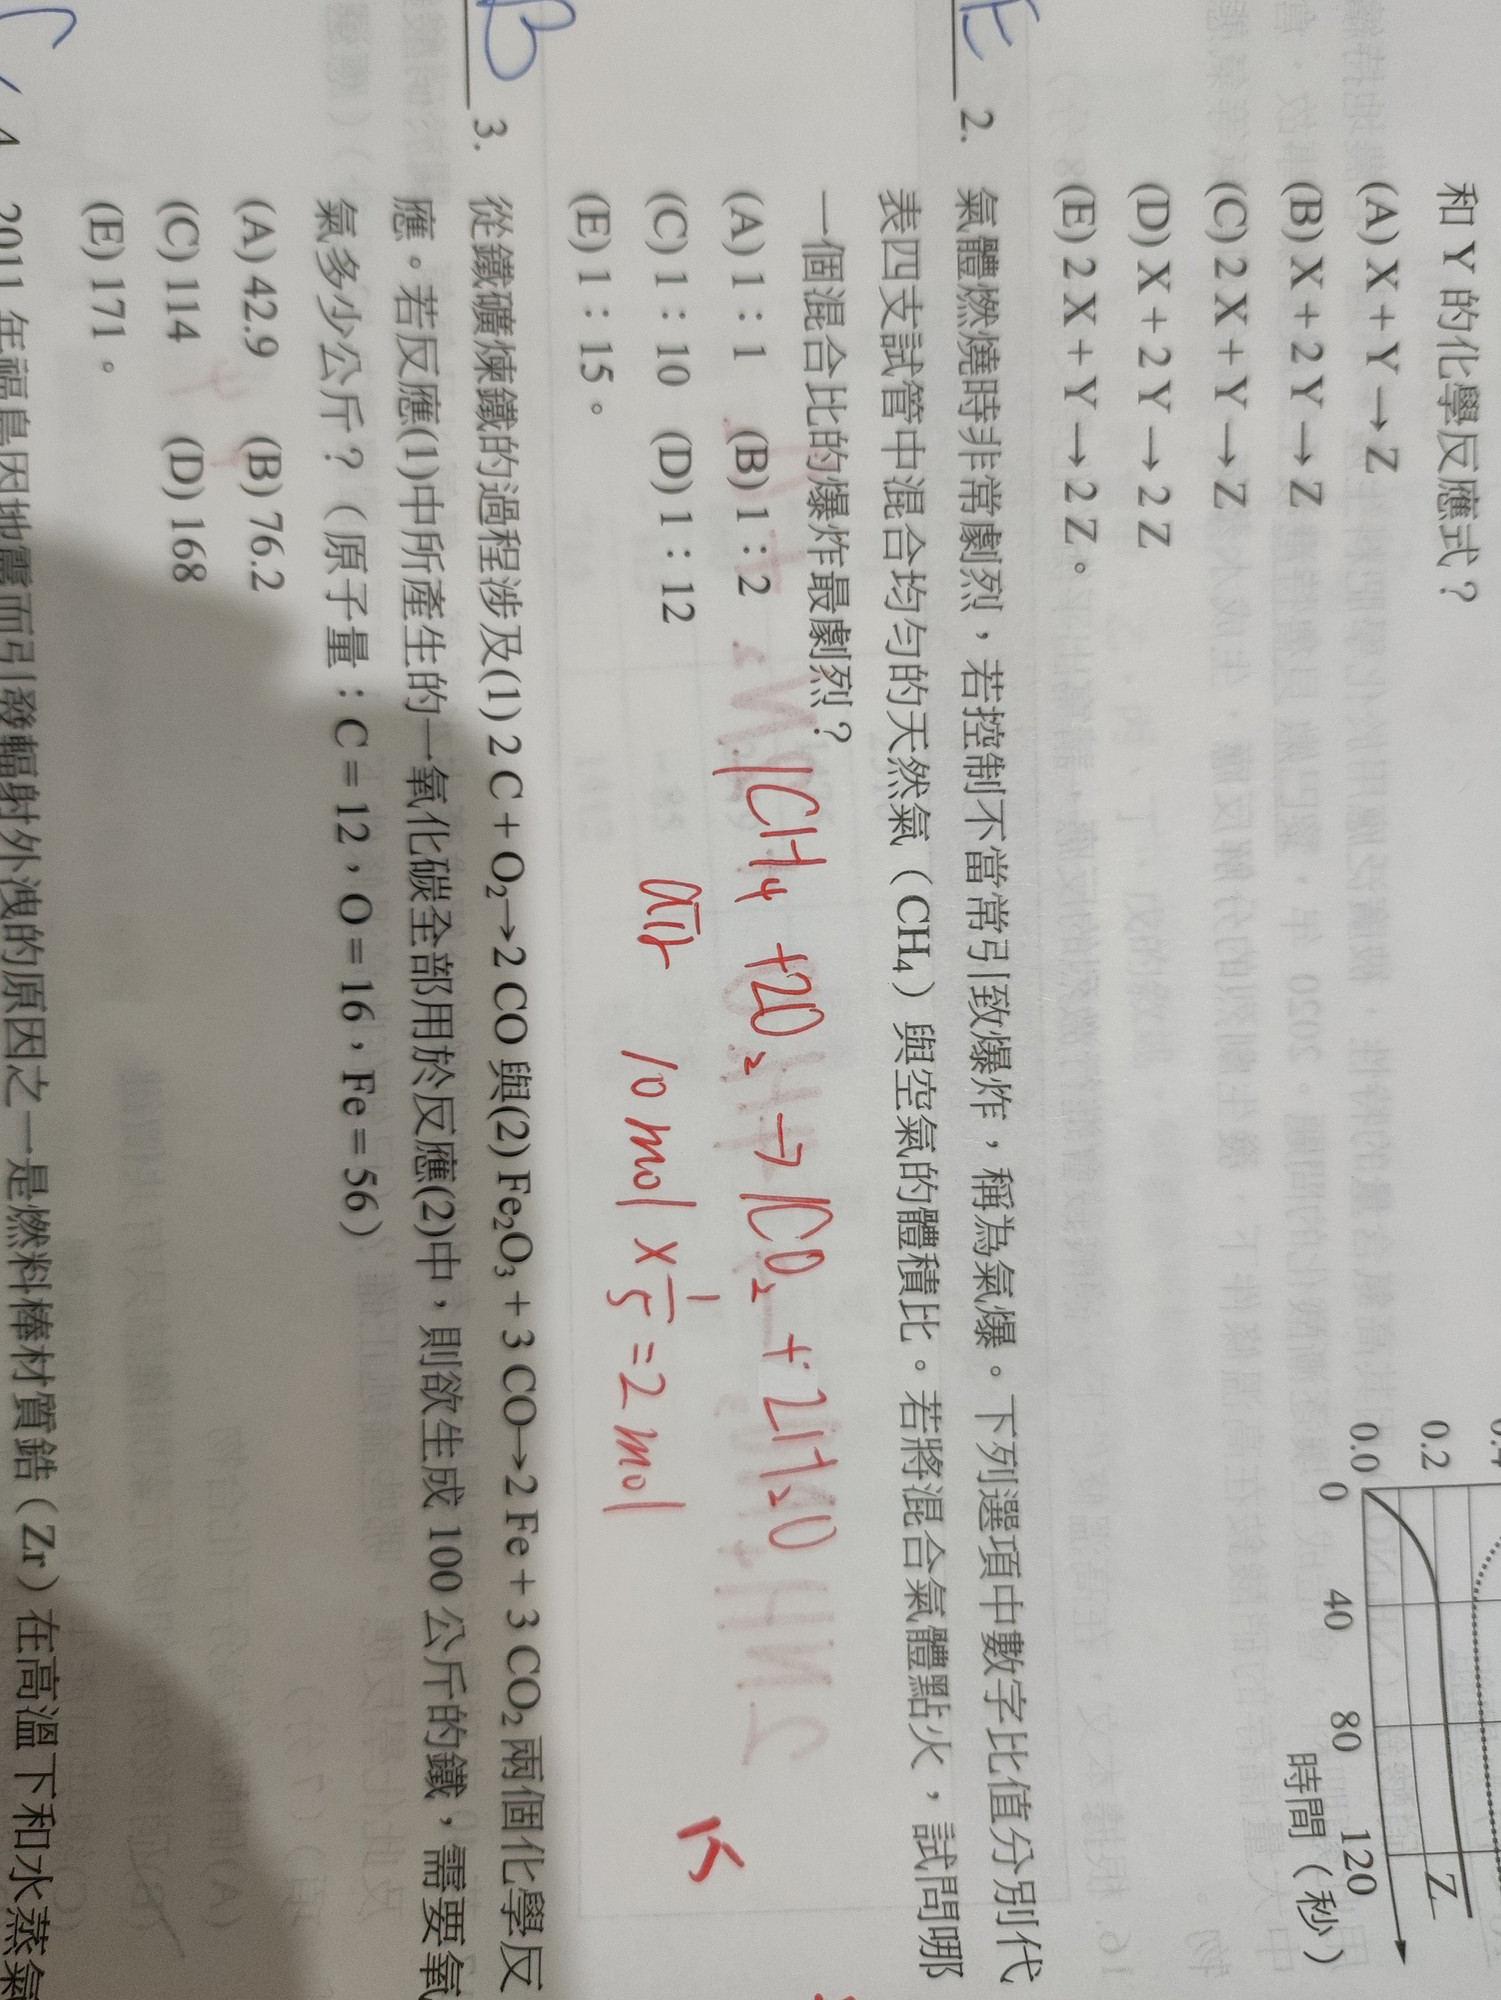 和 Y 的化學反應式？
(A) X + Y → Z
(B) X + 2 Y → Z
(C) 2 X + Y → Z
(D) X + 2 Y → 2 Z
(E) 2 X + Y → 2 Z。
0.2
0.0
0 40 80 120
Z
時間（秒）
E 2. 氣體燃燒時非常劇烈，若控制不當常引致爆炸，稱為氣爆。下列選項中數字比值分別代
表四支試管中混合均勻的天然氣（CH₄）與空氣的體積比。若將混合氣體點火，試問哪
一個混合比的爆炸最劇烈？
(A) 1：1 (B) 1：2
(C) 1：10 (D) 1：12
(E) 1：15。
1CH₄ + 2O₂ → 1CO₂ + 2H₂O
air 10 mol × 1/5 = 2 mol
B 3. 從鐵礦煉鐵的過程涉及(1) 2 C + O₂→2 CO 與(2) Fe₂O₃ + 3 CO→2 Fe + 3 CO₂ 兩個化學反
應。若反應(1)中所產生的一氧化碳全部用於反應(2)中，則欲生成 100 公斤的鐵，需要氧
氣多少公斤？（原子量：C = 12，O = 16，Fe = 56）
(A) 42.9 (B) 76.2
(C) 114 (D) 168
(E) 171。
4 2011 年福島因地震而引發輻射外洩的原因之一是燃料棒材質鋯（Zr）在高溫下和水蒸氣